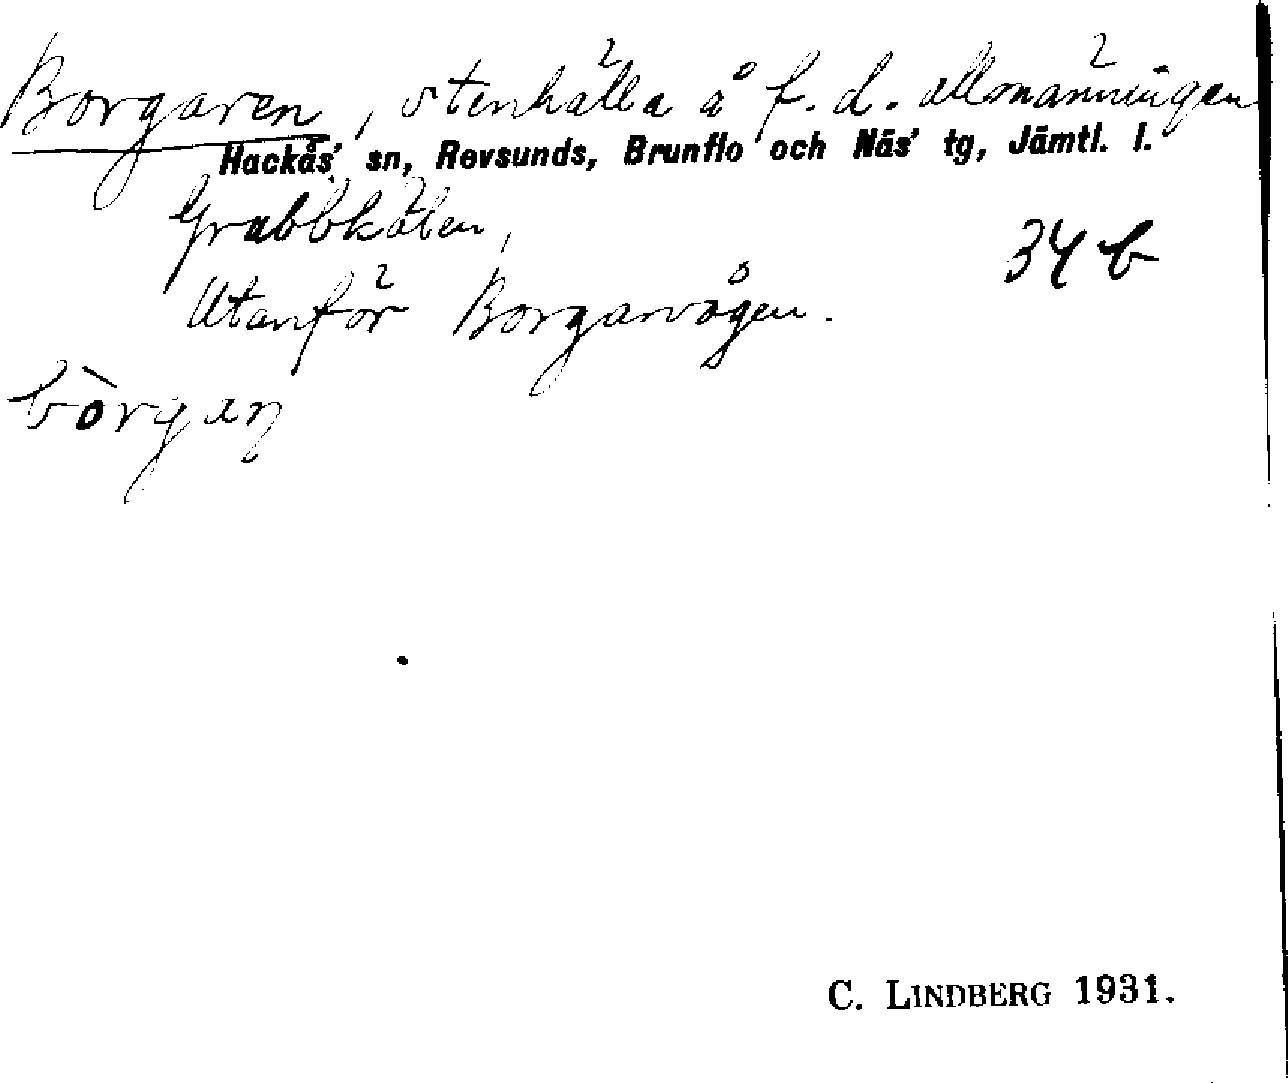 Borgaren, stenhälla å f. d. allmänningen
Hackås' sn, Revsunds, Brunflo och Näs' tg, Jämtl. l.
Grabbkölen,
34 b
Utanför Borgarvågen.
bòrgaɳ
C. LINDBERG 1931.